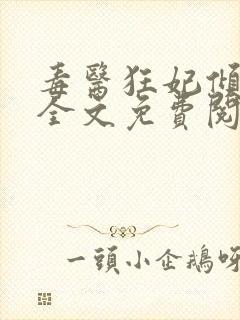 毒醫狂妃傾
全文免費閱
一頭小企鵝呀